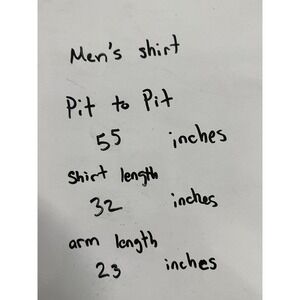 Men's shirt
Pit to Pit
55 inches
Shirt length
32 inches
arm length
23 inches